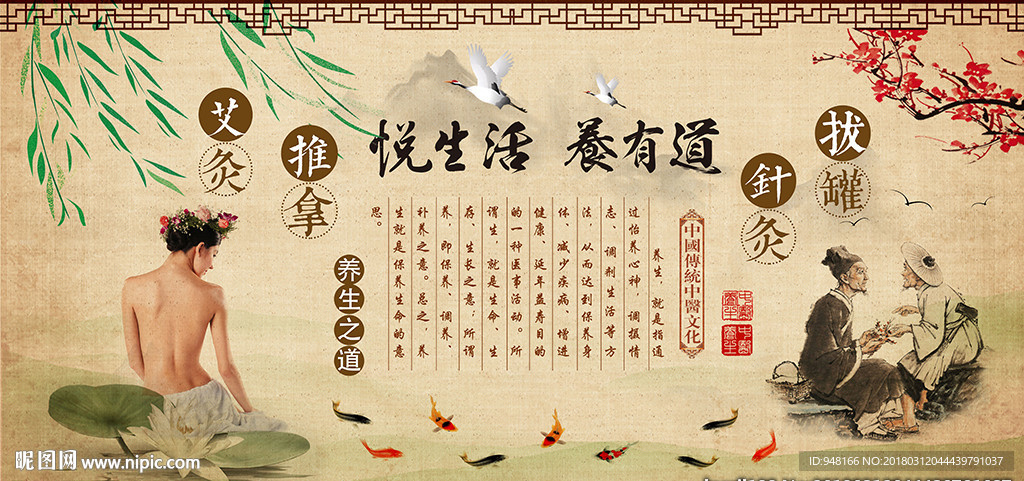 艾灸
推拿
悦生活 養有道
針灸
拔罐
养生之道
中國傳統中醫文化
养生，就是指通
过怡养心神，调摄情
志、调剂生活等方
法，从而达到保养身
体、减少疾病、增进
健康、延年益寿目的
的一种医事活动。所
谓生，就是生命、生
存、生长之意；所谓
养，即保养、调养、
补养之意。总之，养
生就是保养生命的意
思。
昵图网 www.nipic.com
ID:948166 NO:20180312044439791037